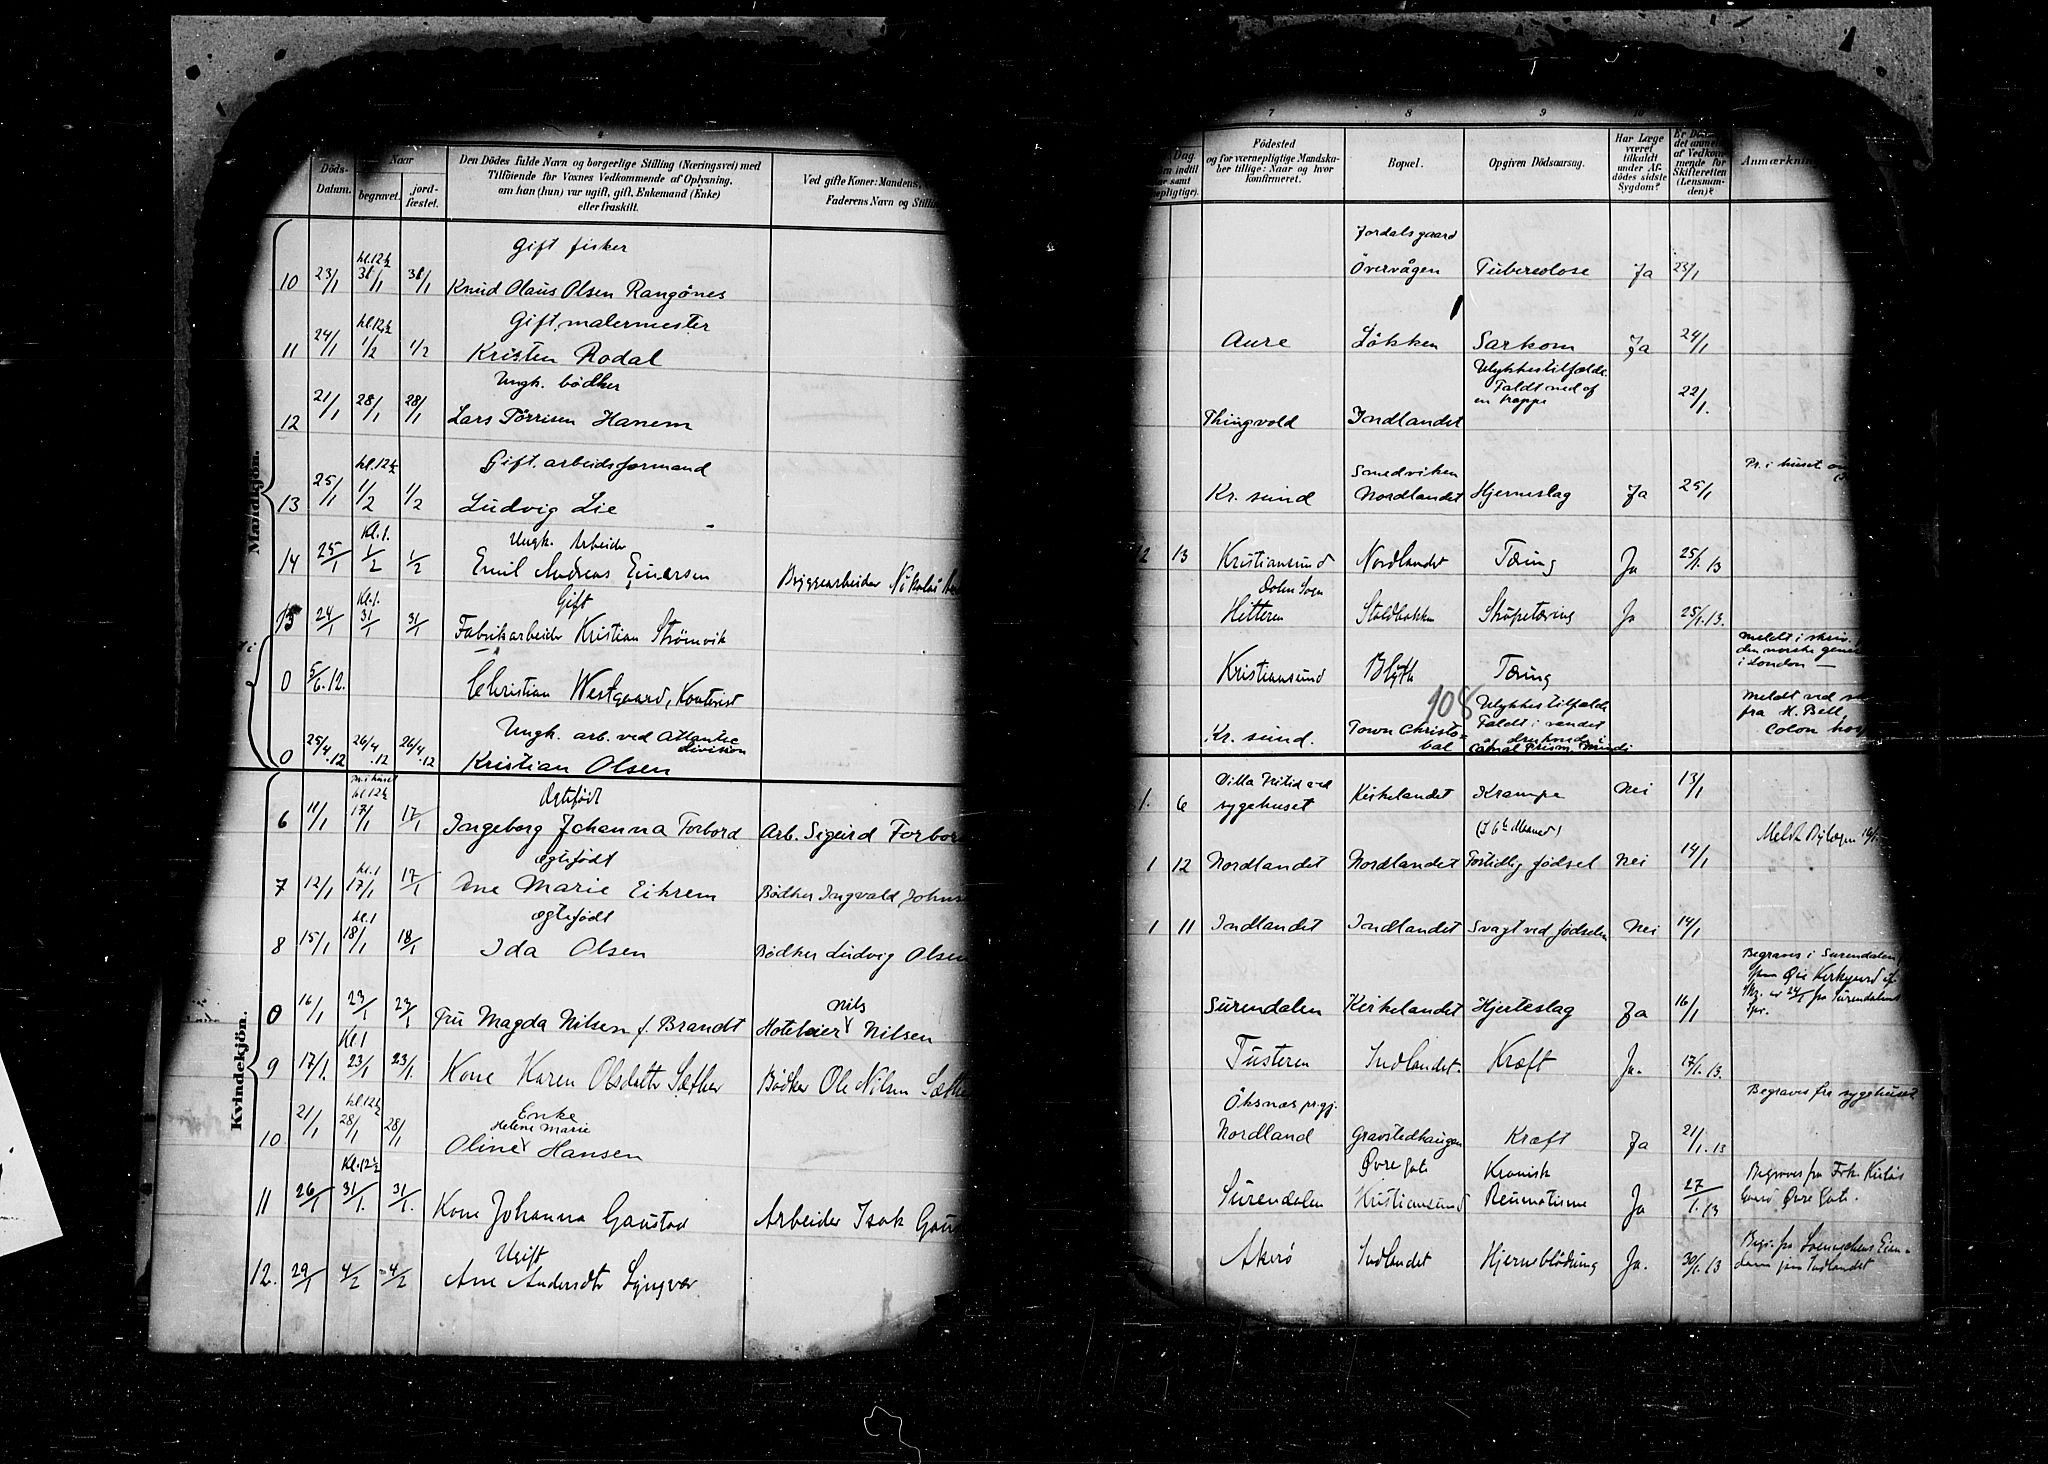 Döds-Datum.
Naar
begravet.
jord-fæstet.
6
Den Dödes fulde Navn og borgerlige Stilling (Næringsvei) med
Tilföiende for Voxnes Vedkommende af Oplysning,
om han (hun) var ugift, gift, Enkemand (Enke)
eller fraskilt.
Ved gifte Koner: Mandens,
Faderens Navn og Stilling
Mandkjön.
Gift fisker
10 23/1 kl.12½ 31/1 31/1 Knud Olaus Olsen Rangönes
Gift malermester
11 24/1 kl.12½ 1/2 1/2 Kristen Rodal
Ungk. bödker
12 21/1 28/1 28/1 Lars Törrisen Hanem
Gift. arbeidsformand
13 25/1 kl.12½ 1/2 1/2 Ludvig Lie
Ungk. Arbeider
14 25/1 Kl.1. 1/2 1/2 Emil Andreas Einarsen Bryggearbeider Nikolai
Gift
15 24/1 Kl.1. 31/1 31/1 Fabrikarbeider Kristian Strömvik
0 5/6.12. Christian Westgaard, Kontorist
Ungk. arb. ved Atlantic
division
0 25/4.12 26/4.12 26/4.12 Kristian Olsen
Kvindekjön.
Ægtefödt
6 11/1 kl.12½ 17/1 17/1 Ingeborg Johanna Forbord Arb. Sigurd Forbord
ægtefödt
7 12/1 kl.1 17/1 17/1 Ane Marie Eikrem Bödker Ingvald Johns
ægtefödt
8 15/1 kl.1 18/1 18/1 Ida Olsen Bödker Ludvig Olsen
Nils
0 16/1 23/1 23/1 Fru Magda Nilsen f. Brandt Hoteleier Nilsen
9 17/1. Kl 1 23/1 23/1. Kone Karen Olsdatter Sæther Bödker Ole Nilsen Sæthe
Enke
Helene Marie
10 21/1 kl.12½ 28/1 28/1 Oline Hansen
11 26/1 Kl.12½ 31/1. 31/1. Kone Johanna Gaustad Arbeider Isak Gau
Ugift
12. 29/1 4/2 4/2 Ane Andersdtr Lyngvær
7
8
9
10
Dag
Födested
og for værnepligtige Mandska-
ber tillige: Naar og hvor
konfirmeret.
Bopæl.
Opgiven Dödsaarsag.
Har Læge
været
tilkaldt
under Af-
dödes sidste
Sygdom?
Er Döds-
det anmeldt
af Vedkom-
mende for
Skifteretten
(Lensman-
den)?
Anmærkning
Jordalsgaard
Övervågen Tuberculose Ja 23/1
Aure Lökken Sarkom Ja 24/1
Ulykkestilfælde.
Faldt ned af
en trappe
22/1.
Thingvold Indlandet
Smedviken
Pr. i huset
Kr. sund Nordlandet Hjerneslag Ja 25/1
12 13 Kristiansund Nordlandet Tæring Ja 25/1.13
Dolm Sogn
Hitteren Staldbakken Strupetæring Ja 25/1.13.
Meldt i skriv.
den norske gene
i London —
Kristiansund Blyth Tæring
108
Ulykkestilfælde
Faldt i vandet
Meldt ved
fra H. Bell,
Colon hos
Kr. sund. Town Christo-
bal
Villa Fritid ved
1. 6 sygehuset Kirkelandet Krampe Nei 13/1
1 12 Nordlandet Nordlandet Fortidlig födsel Nei 14/1
1 11 Indlandet Indlandet Svagt ved födselen Nei 14/1
Begraves i Surendalen
Surendalen Kirkelandet Hjerteslag Ja 16/1
Tusteren Indlandet. Kræft Ja. 17/1.13.
Begraves fra sygehuset
Öksnæs pr.gj.
Nordland Gravstedhaugen Kræft Ja 21/1.13
Övre gate Kronisk
Surendalen Kristiansund Reumatisme Ja 27/1.13
Akerö Indlandet Hjerneblödning Ja. 30/1.13